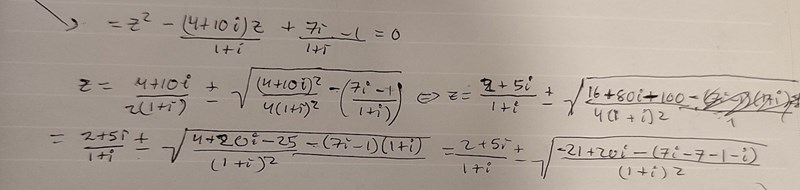 = z² - (4+10i)z/1+i + 7i-1/1+i = 0
z = 4+10i/2(1+i) ± √((4+10i)²/4(1+i)² - (7i-1/1+i)) ⇔ z = 2+5i/1+i ± √(16+80i+100 - /4(1+i)2
= 2+5i/1+i ± √(4+20i-25 - (7i-1)(1+i)/(1+i)²) = 2+5i/1+i ± √(-21+20i-(7i-7-1-i)/(1+i)2)